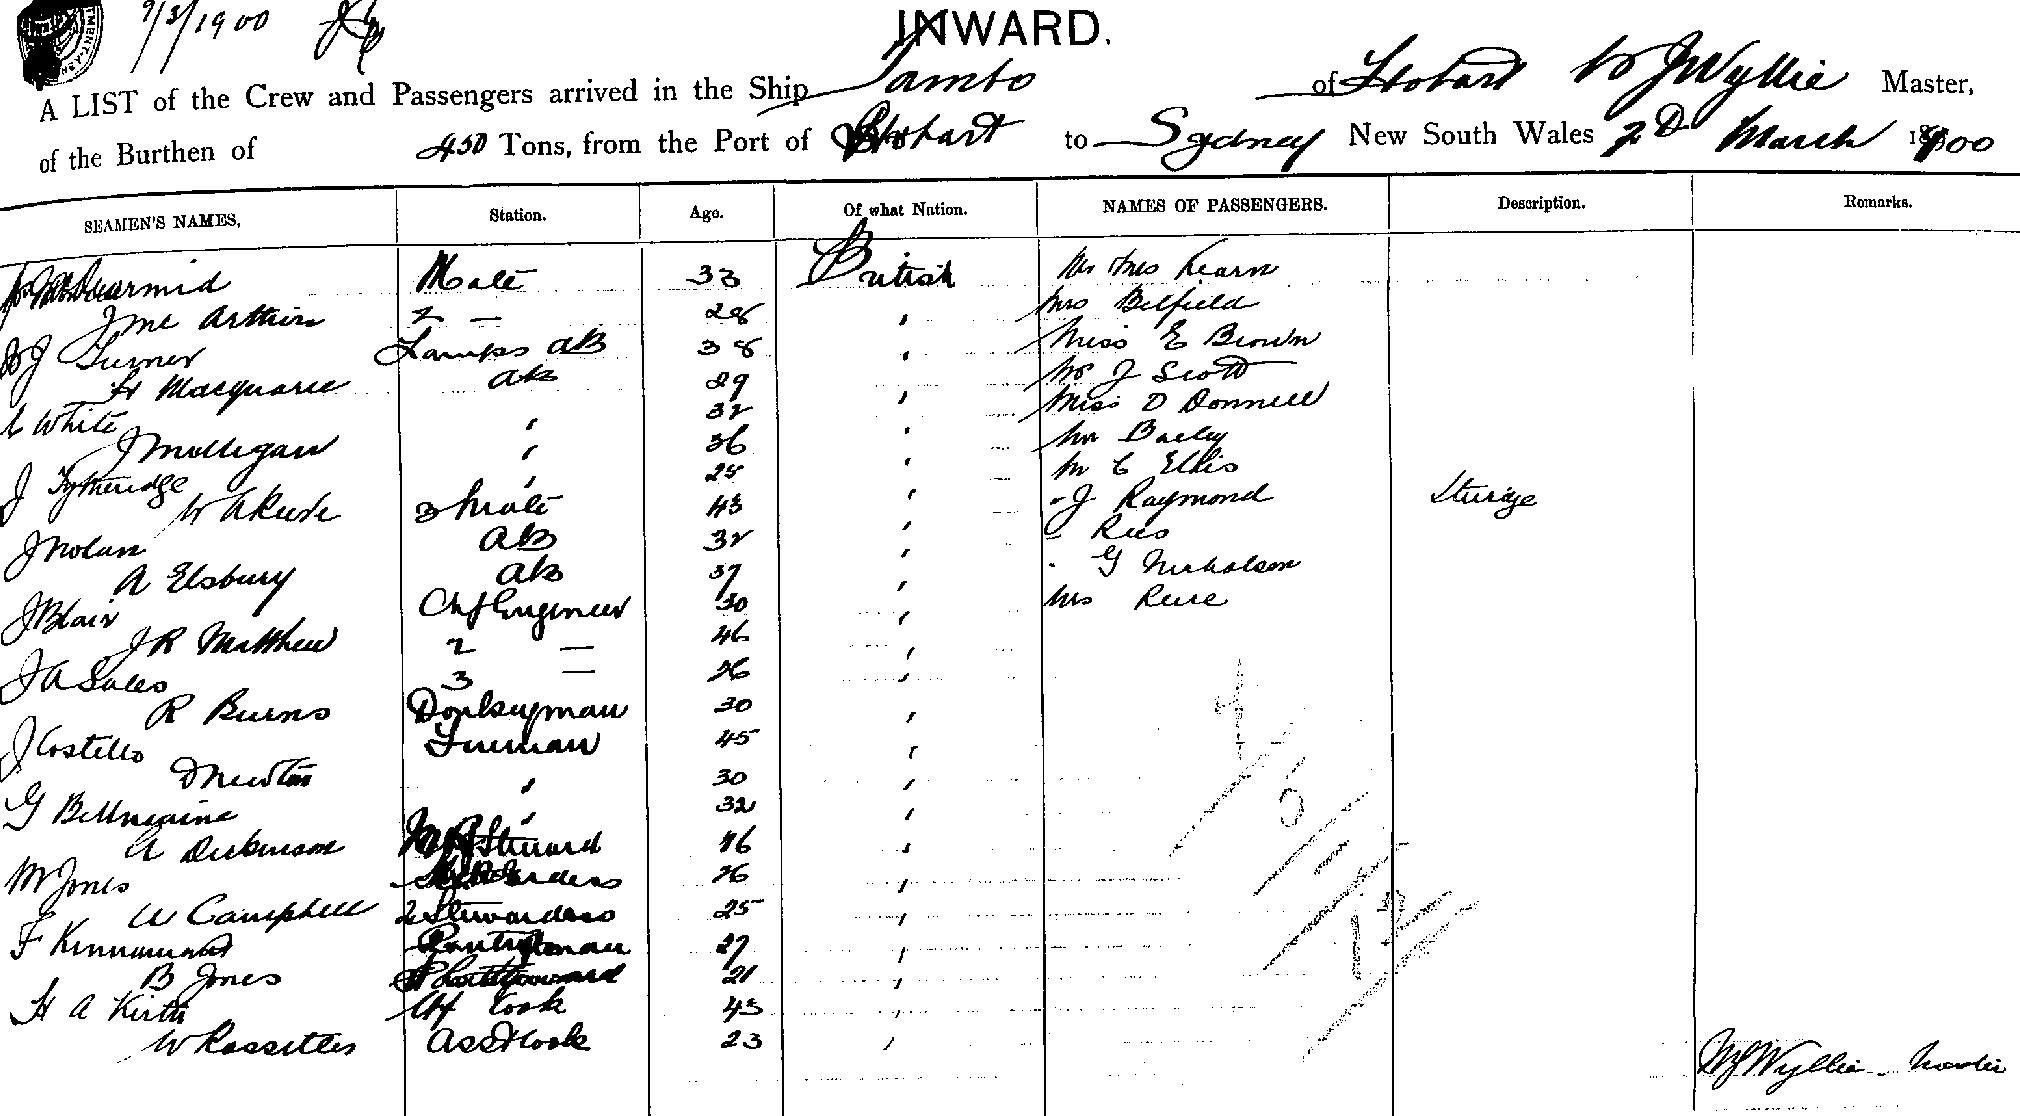 9/3/1900
INWARD.
A LIST of the Crew and Passengers arrived in the Ship Tambo of Hobart W J Wyllie Master,
of the Burthen of 450 Tons, from the Port of Hobart to Sydney New South Wales 2D March 1900
SEAMEN'S NAMES, Station. Age. Of what Nation. NAMES OF PASSENGERS. Description. Remarks.
McDiarmid Mate 33 British Mr & Mrs Kearn
J Mc Arthur 2 — 28 " Mrs Belfield
J Turner Lamps AB 38 " Miss E Brown
H Macquarie AB 29 " Mr J Scott
C White " 32 " Miss O Donnell
J Mulligan " 36 " Mr Baily
J Tytheridge " 25 " Mr C Ellis
W A Reeve 3 Mate 43 " - J Raymond Steerage
J Nolan AB 32 " - Rees
A Elsbury AB 37 " - G Nicholson
J Blair Chf Engineer 30 " Mrs Reece
J R Matthew 2 — 46 "
J A Sales 3 — 26 "
R Burns Donkeyman 30 "
J Costello Fireman 45 "
D Newton " 30 "
G " 32 "
A Dickenson Steward 46 "
M Jones 26 "
W Campbell 2 Stewardess 25 "
F Pantryman 27 "
B Jones 21 "
H A Kirth Chf Cook 43 "
W Rossetter Asst Cook 23 "
W J Wyllie - Master